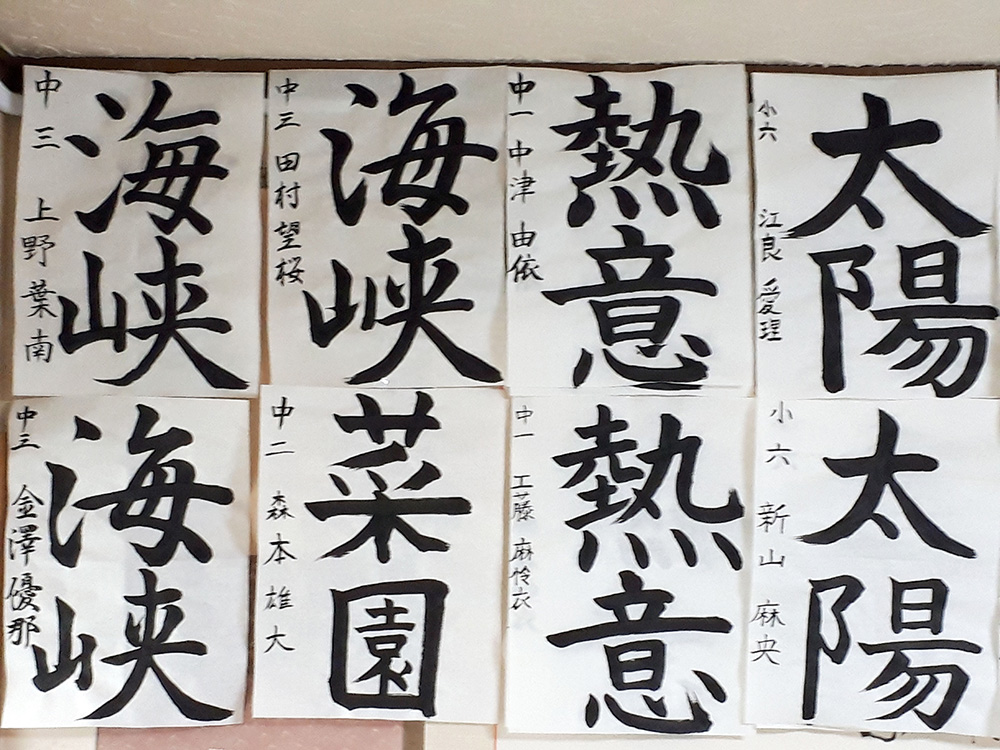 太陽
小六 江良 愛理
熱意
中一 中津 由依
海峡
中三 田村望桜
海峡
中三 上野葉南
太陽
小六 新山 麻央
熱意
中一 工藤 麻怜衣
菜園
中二 森本雄大
海峡
中三 金澤優那